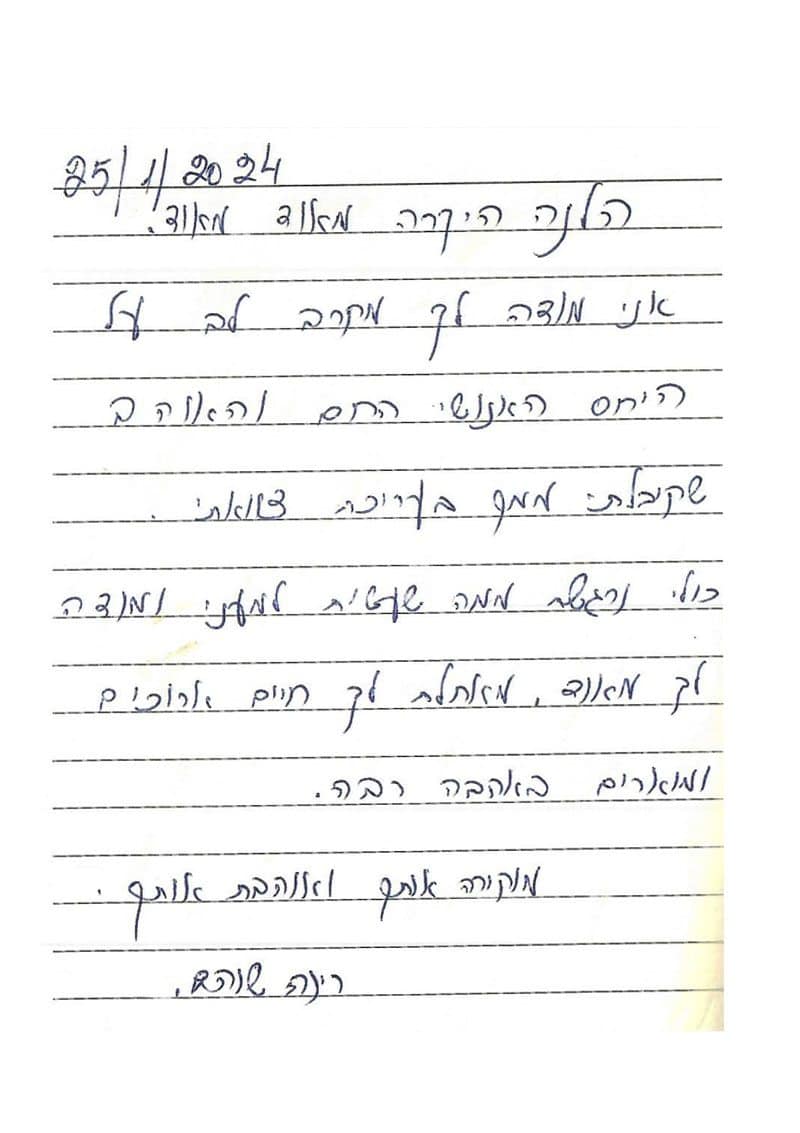 25/1/2024
הלנה היקרה מאוד מאוד.
אני מודה לך מקרב לב על
היחס האנושי החם והאוהב
שקיבלתי ממך בעריכת צוואתי.
כולי נרגשת ממה שעשית למעני ומודה
לך מאוד, מאחלת לך חיים ארוכים
ומוארים באהבה רבה.
מוקירה אותך ואוהבת אותך.
רינה שוהם.